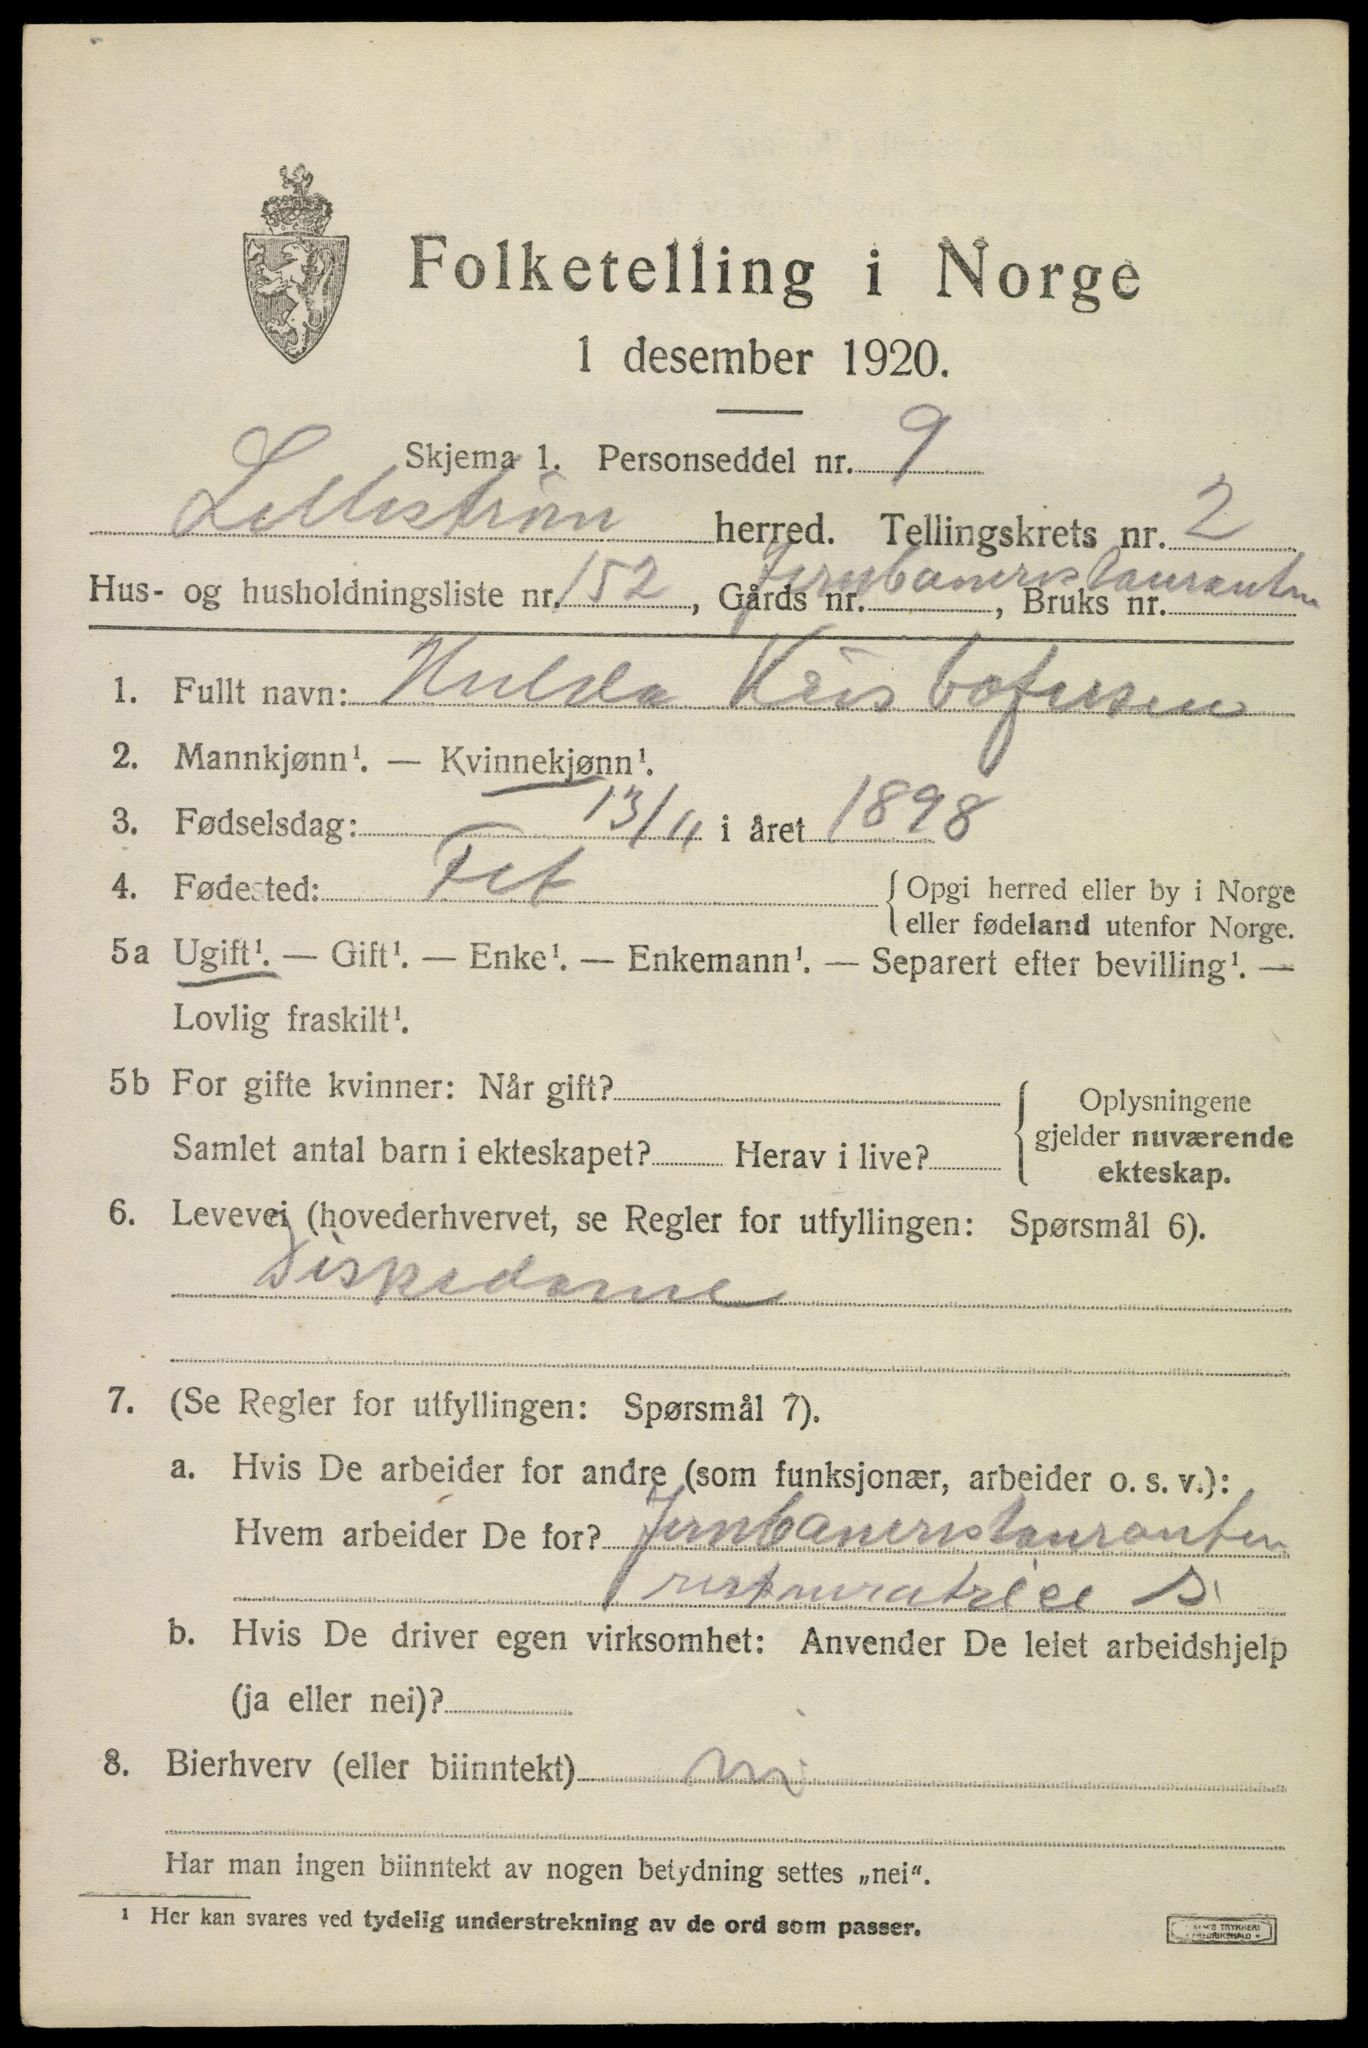 Folketelling i Norge
1 desember 1920.
Skjema 1. Personseddel nr. 9
Lillestrøm herred. Tellingskrets nr. 2
Hus- og husholdningsliste nr. 152, Gårds nr. Jernbanerestauranten, Bruks nr.
1. Fullt navn: Hulda Kristofersen
2. Mannkjønn¹. — Kvinnekjønn¹.
3. Fødselsdag: 13/11 i året 1898
4. Fødested: Fet {Opgi herred eller by i Norge
eller fødeland utenfor Norge.
5a Ugift¹. — Gift¹. — Enke¹. — Enkemann¹. — Separert efter bevilling¹. —
Lovlig fraskilt¹.
5b For gifte kvinner: Når gift? Oplysningene
gjelder nuværende
Samlet antal barn i ekteskapet? Herav i live?
ekteskap.
6. Levevei (hovederhvervet, se Regler for utfyllingen: Spørsmål 6).
Diskedame
7. (Se Regler for utfyllingen: Spørsmål 7).
a. Hvis De arbeider for andre (som funksjonær, arbeider o. s. v.):
Hvem arbeider De for? Jernbanerestauranten
restauratrice
b. Hvis De driver egen virksomhet: Anvender De leiet arbeidshjelp
(ja eller nei)?
8. Bierhverv (eller biinntekt) nei
Har man ingen biinntekt av nogen betydning settes „nei“.
¹ Her kan svares ved tydelig understrekning av de ord som passer.
TRYKKERI
FREDRIKSHALD